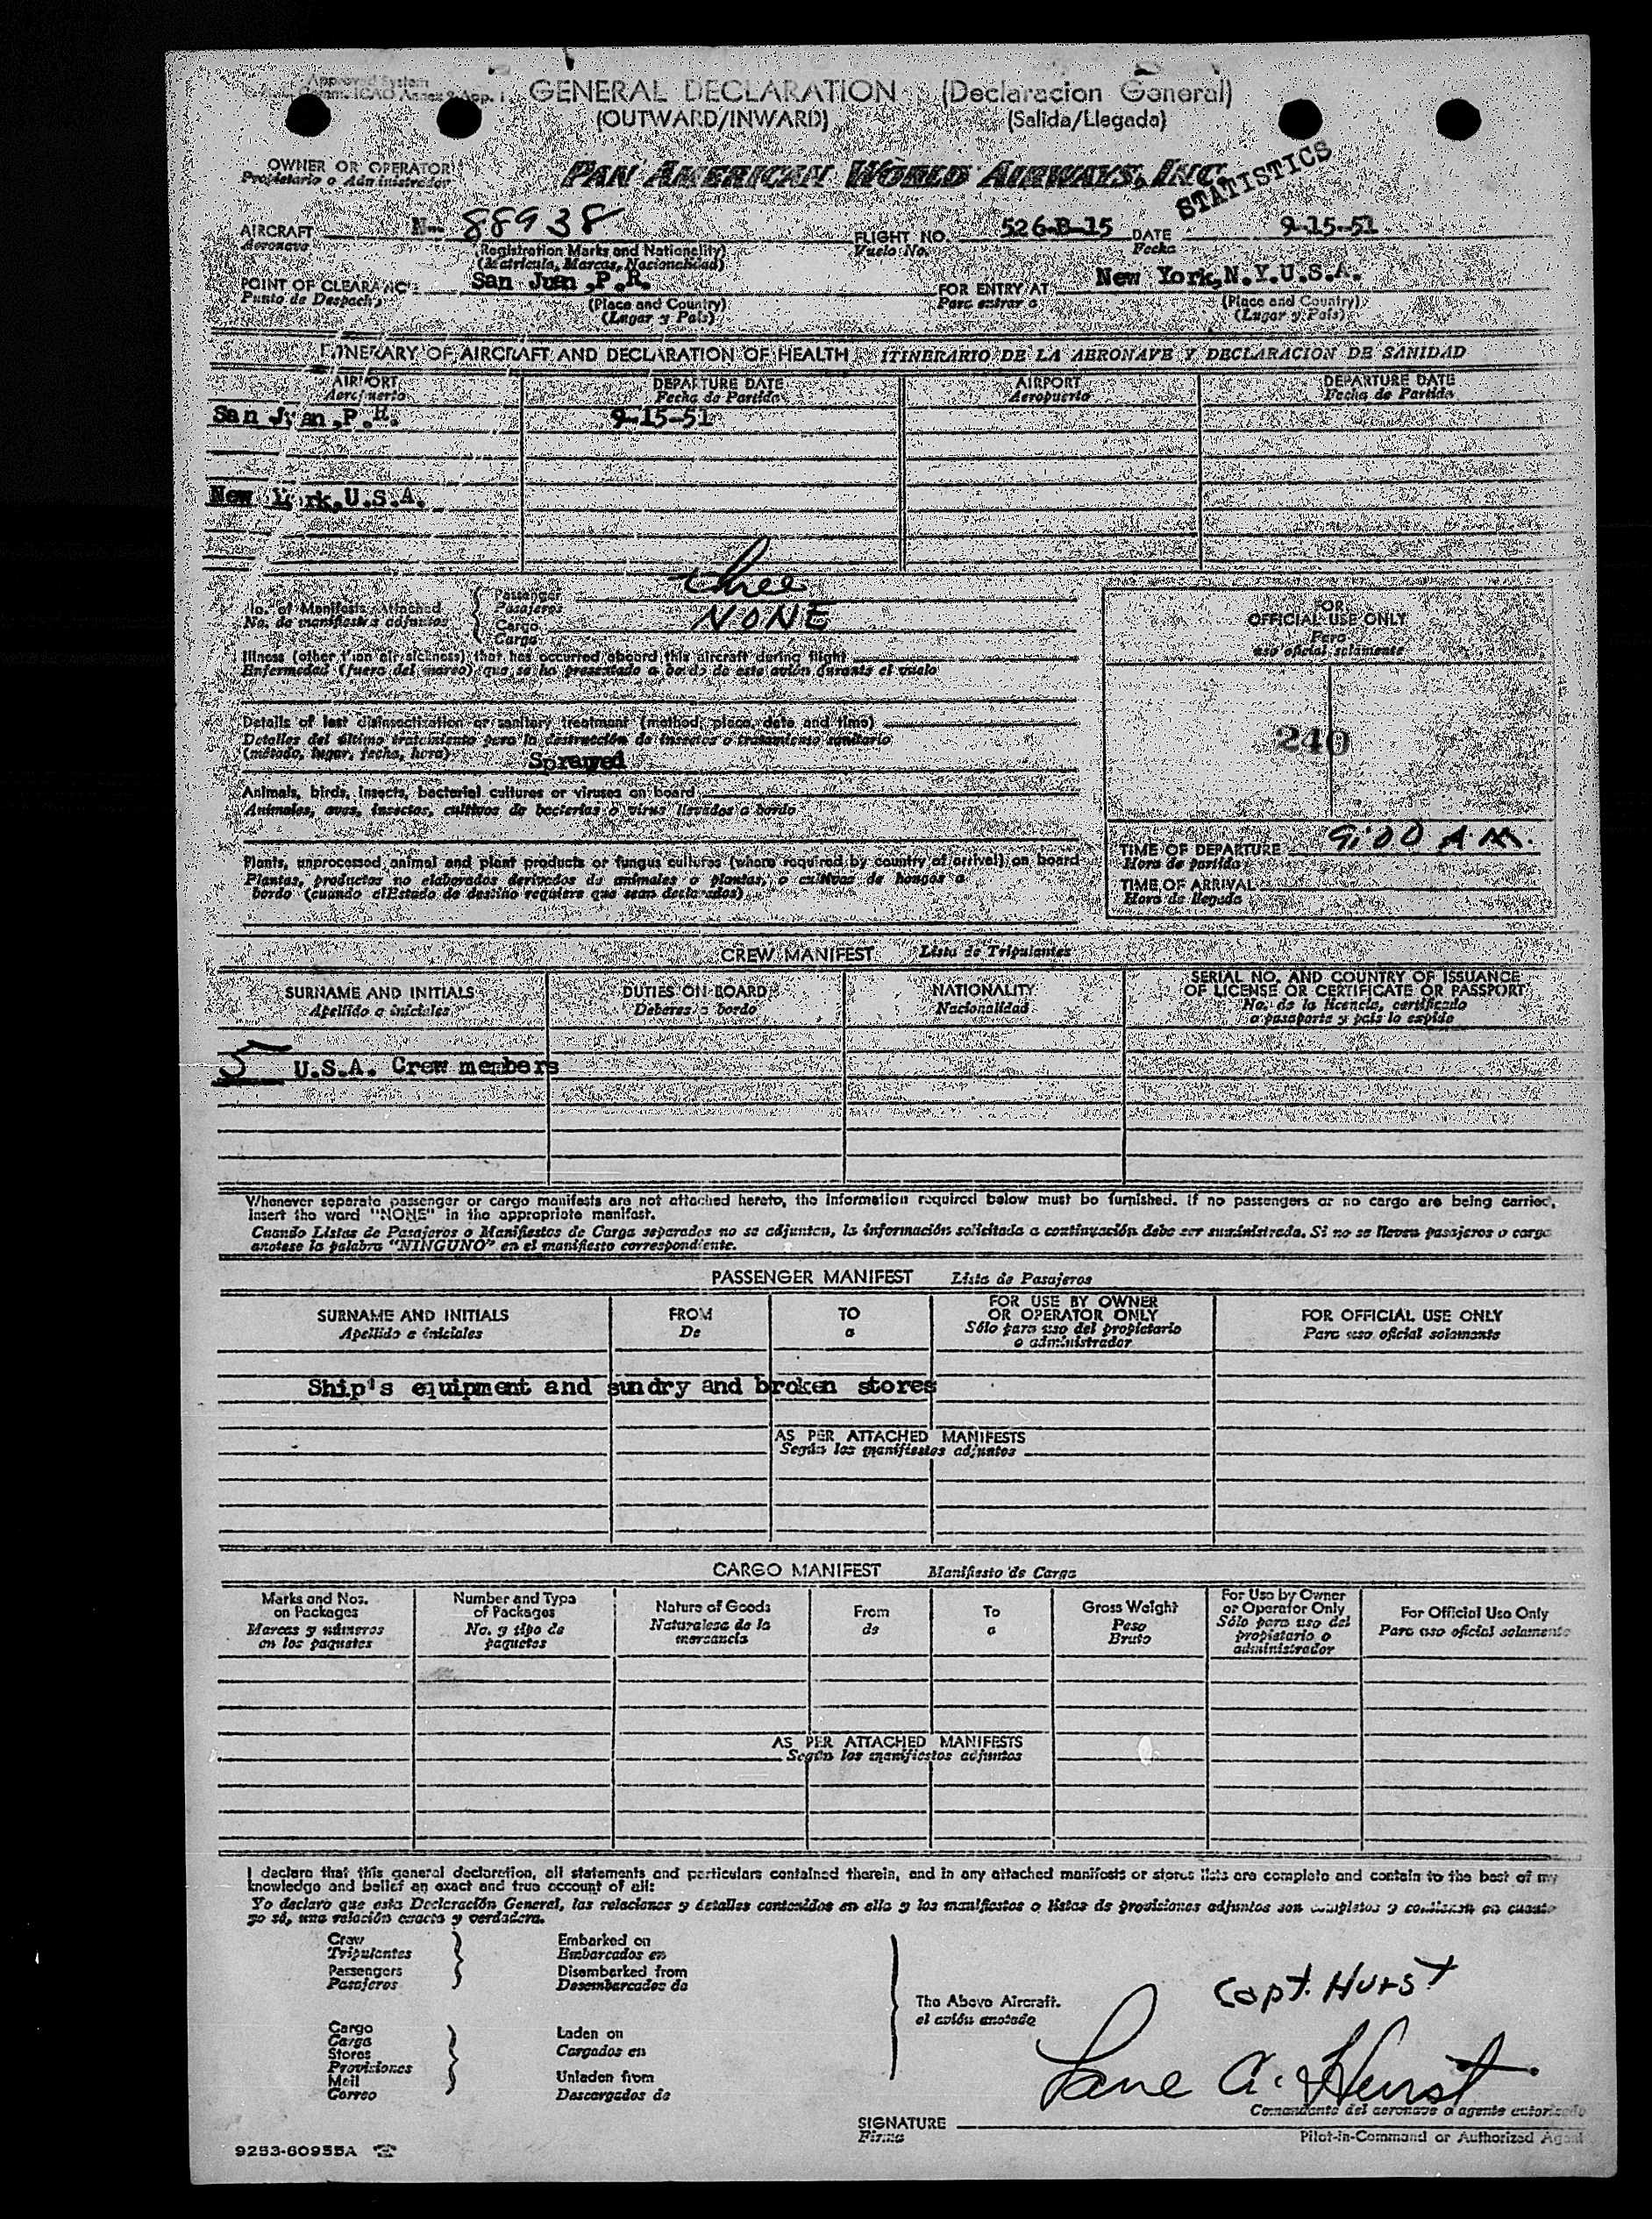 Approved System
Comm. ICAO Annex 9 App. 1
GENERAL DECLARATION (Declaracion General)
(OUTWARD/INWARD) (Salida/Llegada)
OWNER OR OPERATOR
Propietario o Administrador
PAN AMERICAN WORLD AIRWAYS, INC.
STATISTICS
AIRCRAFT N-- 88938 FLIGHT NO. 526-B-15 DATE 9-15-51
Aeronave Vuelo No. Fecha
(Registration Marks and Nationality)
(Matricula, Marcas, Nacionalidad)
POINT OF CLEARANCE San Juan,P.R. FOR ENTRY AT New York,N.Y.U.S.A.
Punto de Despacho (Place and Country) Para entrar a (Place and Country)
(Lugar y Pais) (Lugar y Pais)
ITINERARY OF AIRCRAFT AND DECLARATION OF HEALTH ITINERARIO DE LA AERONAVE Y DECLARACION DE SANIDAD
AIRPORT DEPARTURE DATE AIRPORT DEPARTURE DATE
Aeropuerto Fecha de Partida Aeropuerto Fecha de Partida
San Juan,P.R. 9-15-51
New York,U.S.A.
No. of Manifests Attached Passenger three
No. de manifiestos adjuntos Pasajeros
Cargo NONE
Carga
FOR
OFFICIAL USE ONLY
Para
uso oficial solamente
Illness (other than air sickness) that has occurred aboard this aircraft during flight
Enfermedad (fuera del mareo) que se ha presentado a bordo de este avión durante el vuelo
Details of last disinsectization or sanitary treatment (method, place, date and time)
Detalles del último tratamiento para la destrucción de insectos o tratamiento sanitario
(método, lugar, fecha, hora) Sprayed
240
Animals, birds, insects, bacterial cultures or viruses on board
Animales, aves, insectos, cultivos de bacterias o virus llevados a bordo
TIME OF DEPARTURE 9:00 A.M.
Hora de partida
Plants, unprocessed animal and plant products or fungus cultures (where required by country of arrival) on board
Plantas, productos no elaborados derivados de animales o plantas, o cultivos de hongos a
bordo (cuando el Estado de destino requiere que sean declarados)
TIME OF ARRIVAL
Hora de llegada
CREW MANIFEST Lista de Tripulantes
SURNAME AND INITIALS DUTIES ON BOARD NATIONALITY SERIAL NO. AND COUNTRY OF ISSUANCE
OF LICENSE OR CERTIFICATE OR PASSPORT
Apellido e iniciales Deberes a bordo Nacionalidad No. de la licencia, certificado
o pasaporte y pais lo expido
5 U.S.A. Crew members
Whenever separate passenger or cargo manifests are not attached hereto, the information required below must be furnished. If no passengers or no cargo are being carried,
insert the word "NONE" in the appropriate manifest.
Cuando Listas de Pasajeros o Manifiestos de Carga separados no se adjunten, la información solicitada a continuación debe ser suministrada. Si no se lleven pasajeros o carga
anotese la palabra "NINGUNO" en el manifiesto correspondiente.
PASSENGER MANIFEST Lista de Pasajeros
SURNAME AND INITIALS FROM TO FOR USE BY OWNER
OR OPERATOR ONLY FOR OFFICIAL USE ONLY
Apellido e iniciales De a Sólo para uso del propietario
o administrador Para uso oficial solamente
Ship's equipment and sundry and broken stores
AS PER ATTACHED MANIFESTS
Según los manifiestos adjuntos
CARGO MANIFEST Manifiesto de Carga
Marks and Nos.
on Packages
Marcas y números
en los paquetes
Number and Type
of Packages
No. y tipo de
paquetes
Nature of Goods
Naturaleza de la
mercancía
From
de
To
a
Gross Weight
Peso
Bruto
For Use by Owner
or Operator Only
Sólo para uso del
propietario o
administrador
For Official Use Only
Para uso oficial solamente
AS PER ATTACHED MANIFESTS
Según los manifiestos adjuntos
I declare that this general declaration, all statements and particulars contained therein, and in any attached manifests or stores lists are complete and contain to the best of my
knowledge and belief an exact and true account of all:
Yo declaro que esta Declaración General, las relaciones y detalles contenidos en ella y los manifiestos o listas de provisiones adjuntos son completos y contienen en cuanto
yo sé, una relación exacta y verdadera.
Crew Embarked on
Tripulantes Embarcados en
Passengers Disembarked from
Pasajeros Desembarcados de
The Above Aircraft.
el avión anotado
Capt. Hurst
Cargo
Carga
Stores
Provisiones
Mail
Correo
Laden on
Cargados en
Unladen from
Descargados de
Lane A. Hurst
Comandante del aeronave o agente autorizado
SIGNATURE
Firma
Pilot-in-Command or Authorized Agent
9253-60955A